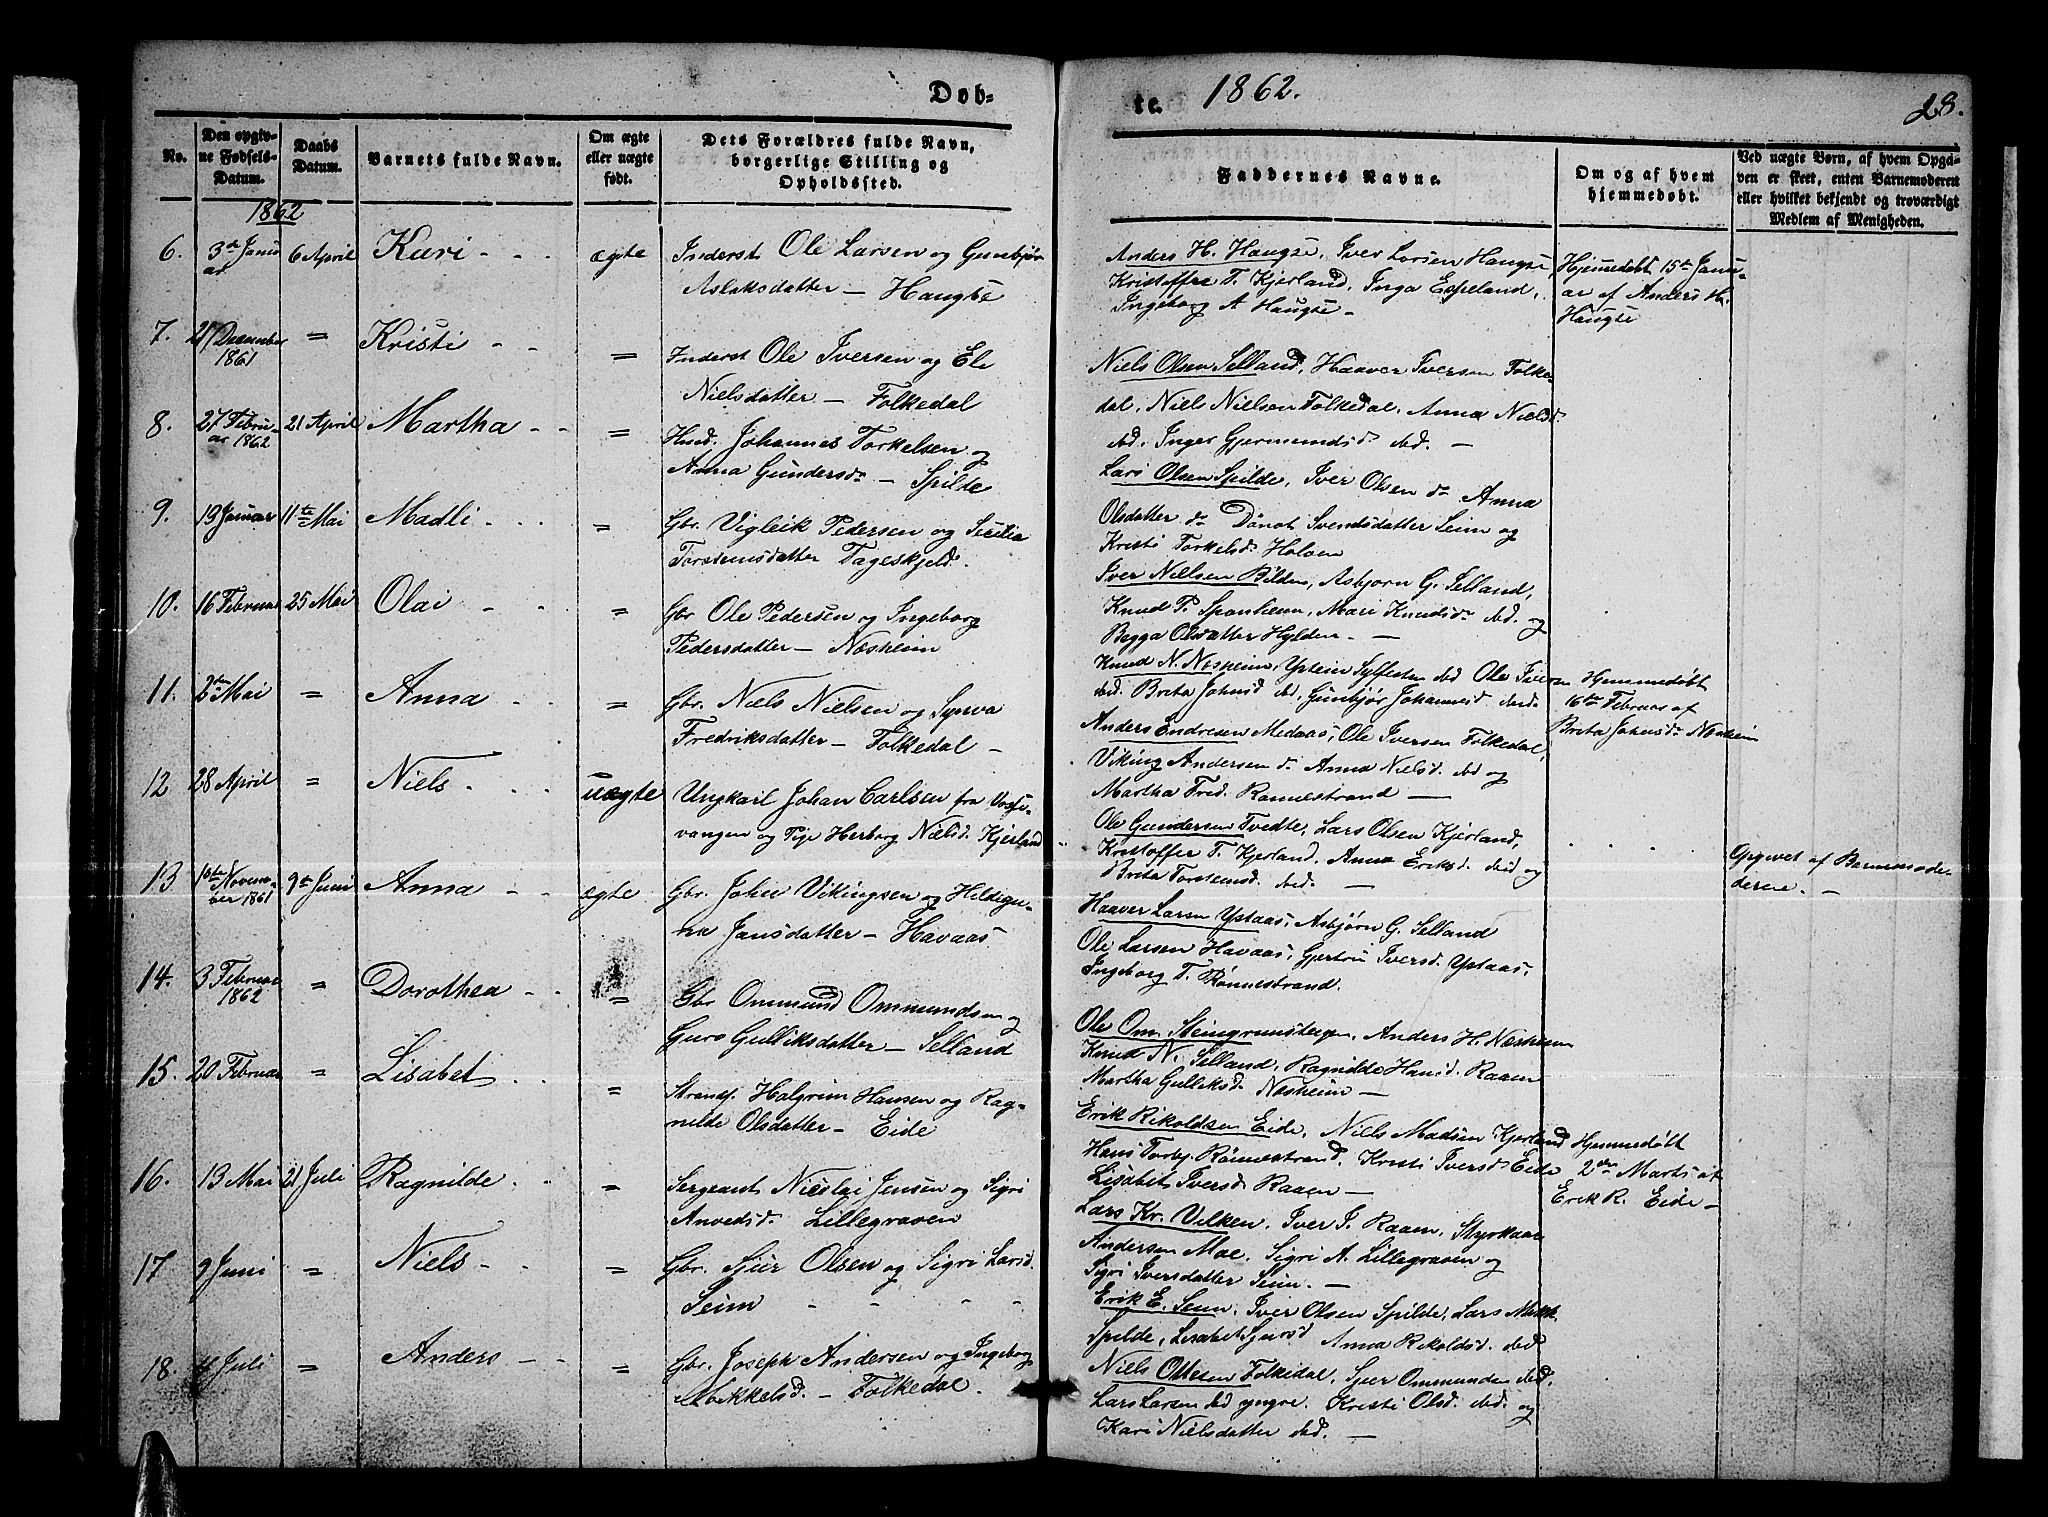 Døb-
te.
1862.
28.
No.
Den opgiv-
ne Fødsels-
Datum.
Daabs
Datum.
Barnets fulde Navn.
Om ægte
eller uægte
født.
Dets Forældres fulde Navn,
borgerlige Stilling og
Opholdssted.
Faddernes Navne.
Om og af hvem
hjemmedøbt.
Ved uægte Børn, af hvem Opga-
ven er skeet, enten Barnemoderen
eller hvilket bekjendt og troværdigt
Medlem af Menigheden.
1862
6. 3de Janu- 6 April Kari - - - ægte Inderst Ole Larsen og Gunbjør
ar
Aslaksdatter — Haugse
Anders H. Haugse, Iver Larsen Haugse,
Kristoffer T. Kjerland, Inga Espeland,
Ingeborg A Haugse -
Hjemmedøbt 15de Janu-
ar af Anders H.
Haugse
7. 21 Desember = Kristi - - = Inderst Ole Iversen og Eli
1861
Nielsdatter — Folkedal
Niels Olsen Selland, Haaver Iversen Folke-
dal, Niels Nielsen Folkedal, Anna Nielsd.
ibd. Inger Gjermundsd. ibd. —
8. 27 Febru- 21 April Martha - - = Husd. Johannes Torkelsen og
ar 1862
Anna Gundersdr — Spilde
Lars Olsen Spilde, Iver Olsen do Anna
Olsdatter do Svendsdatter Seim og
Kristi Torkelsd. Holven
9. 19 Januar 11te Mai Madli - - - = Gbr. Vigleik Pedersen og Secilia
Torsteinsdatter Tageskjeld.
Iver Nielsen Bilden, Asbjørn G. Selland,
Knud P. Sponheim, Mari Knudsd. ibd. og
Bogga Olsdatter Hylden - —
10. 16 Februar 25 Mai Olai - - = Gbr Ole Pedersen og Ingeborg
Pedersdatter — Næsheim
Knud N. Næsheim, Ystein Sylfesten ibd Ole Iversen
ibd. Brita Johnsd ibd, Gunbjør Johannesd ibd.
Hjemmedøbt
16de Februar af
Brita Johnsdr Næsheim
11. 2den Mai = Anna - - = Gbr. Niels Nielsen og Synva
Fredriksdatter — Folkedal —
Anders Endresen Medaas, Ole Iversen Folkedal,
Viking Andersen do Anna Nielsd. ibd og
Martha Fred. Rønnestrand —
12 28 April = Niels - - - uægte Ungkarl Johan Carlsen fra Vosse-
vangen og Pige Herborg Nielsd. Kjerland
Ole Gundersen Tvedte, Lars Olsen Kjerland,
Kristoffer T. Kjerland, Anna Eriksd. ibid og
Brita Torsteinsd. ibd. —
Opgivet af Barnemode-
derene. —
13 1ste Novem- 9de Juni Anna - - ægte Gbr. John Vikingsen og Hildigu-
ber 1861
na Jansdatter — Havaas
Haaver Larsen Ystaas, Asbjørn G. Selland
Ole Larsen Havaas, Gjertru Iversd. Ystaas,
Ingeborg T. Rønnestrand.
14. 3 Februar = Dorothea - - = Gbr Ommund Ommundsen og
1862
Guro Gulliksdatter — Selland
Ole Om. Steingrimstegen, Anders H. Næsheim
Knud N. Selland, Ragnilde Hansd. Raaen
Martha Gulleksd. Næsheim —
15. 20 Februar = Lisabet - - = Strands. Halgrim Hansen og Rag-
nilde Olsdatter — Eide
Erik Rikoldsen Eide, Niels Madsen Kjerland
Hans Torbj. Rønnestrand, Kristi Iversd Eide
Lisabet Iversd. Raaen —
Hjemmedøbt
2den Marts af
Erik R. Eide —
16. 13 Mai 21 Juli Ragnilde - = Sergeant Nicolai Jensen og Sigri
Anvedsd. Lillegraven
Lars Kr. Vilken, Iver I. Raaen, Styrkaar
Andersen Moe, Sigri A. Lillegraven og
Sigri Iversdatter Seim. —
17 9 Juni = Niels - - = Gbr. Sjur Olsen og Sigri Larsd.
Seim - - - -
Erik E. Seim, Iver Olsen Spilde, Lars Mikk.
Spilde, Lisabet Sjursd Anna Rikoldsd. ibd
18. 4 Juli = Anders - - = Gbr. Joseph Andersen og Ingeborg
Mikkelsd. — Folkedal.
Niels Olsen Folkedal, Sjur Ommundsen ibd.
Lars Larsen ibd yngre. Kristi Olsd. ibd. og
Kari Nielsdatter ibd. —